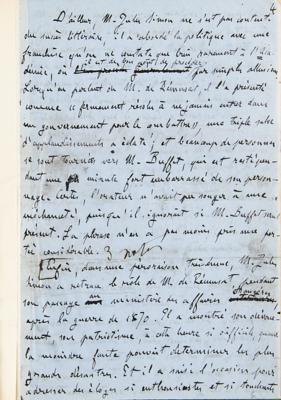 4
D'ailleurs, M. Jules Simon ne s'est pas contenté
du succès littéraire, il a abordé la politique avec une
franchise qu'on ne constate que bien rarement à l'Aca-
démie, où il est de bon goût de procéder
par simple allusion.
Lorsqu'en parlant de M. de Rémusat, il l'a présenté
comme « fermement résolu à ne jamais entrer dans
un gouvernement pour le combattre », une triple salve
d'applaudissements a éclaté ; et beaucoup de personnes
se sont tournées vers M. Buffet, qui est resté pen-
dant une minute fort embarrassé de son person-
nage. Certes, l'orateur n'avait pas songé à une
méchanceté, puisqu'il ignorait si M. Buffet serait
présent. La phrase n'en a pas moins pris une por-
tée considérable.
Enfin, dans une péroraison très émue, M. Jules
Simon a retracé le rôle de M. de Rémusat, pendant
son passage au ministère des affaires étrangères
après la guerre de 1870. Il a montré son dévoue-
ment, son patriotisme, à cette heure si difficile, quand
la moindre faute pouvait déterminer les plus
grands désastres. Et il a saisi l'occasion pour
adresser des éloges si enthousiastes et si touchants